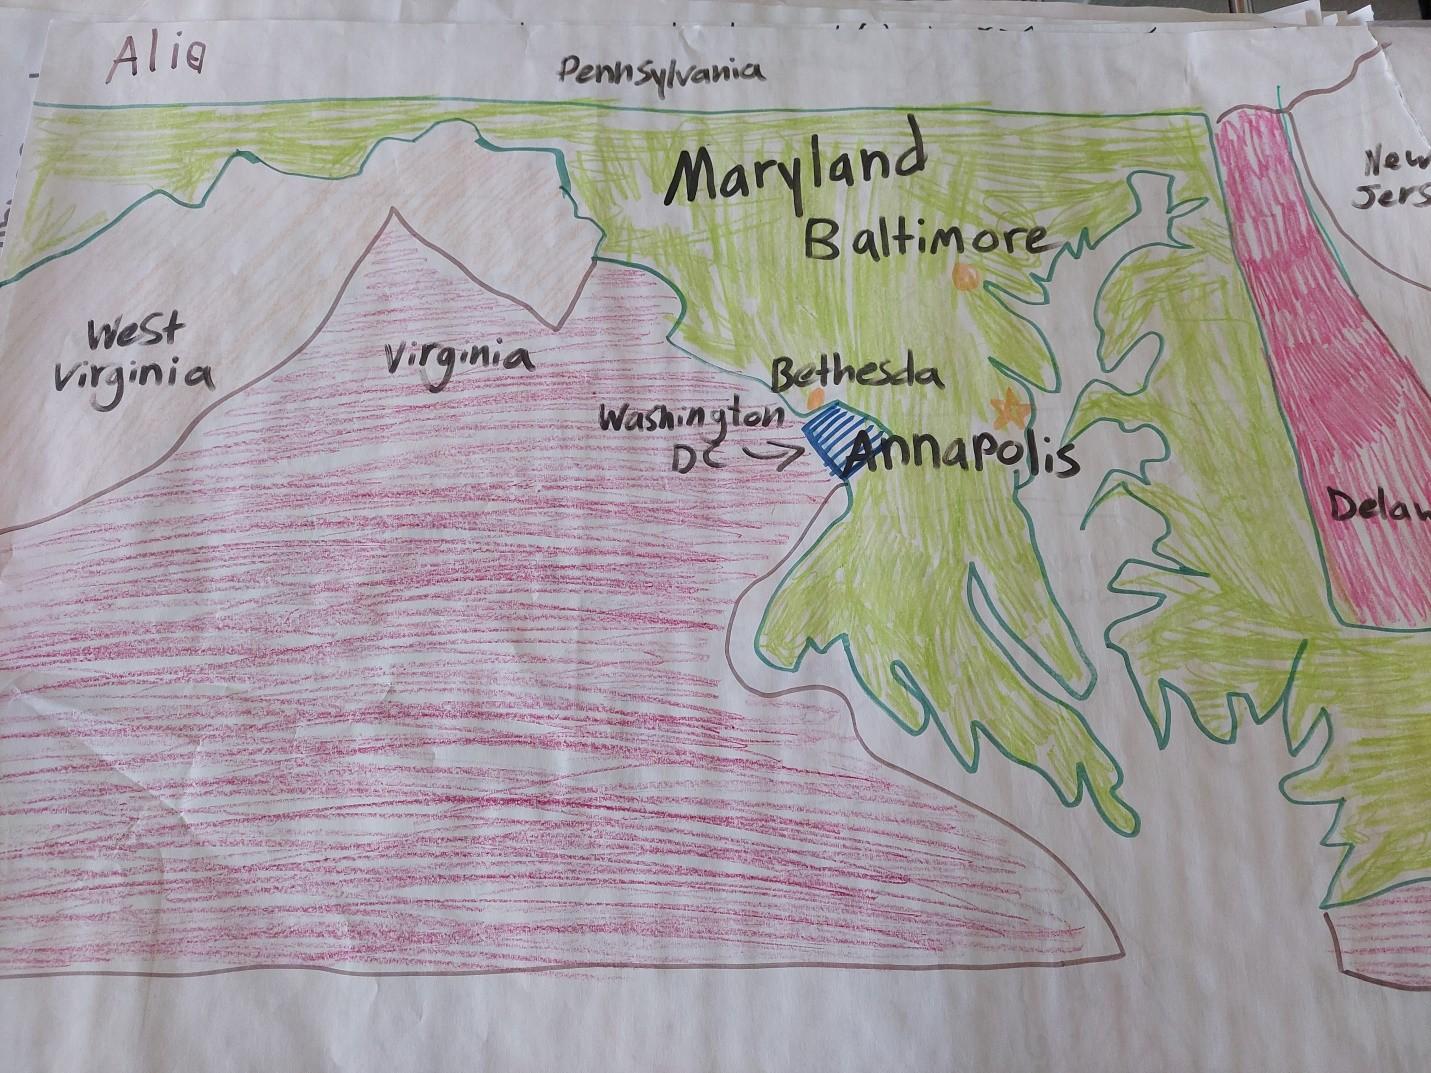 Alia
Pennsylvania
Maryland
New
Jers
Baltimore
West
Virginia
Virginia
Bethesda
Washington
DC →
Annapolis
Delaw